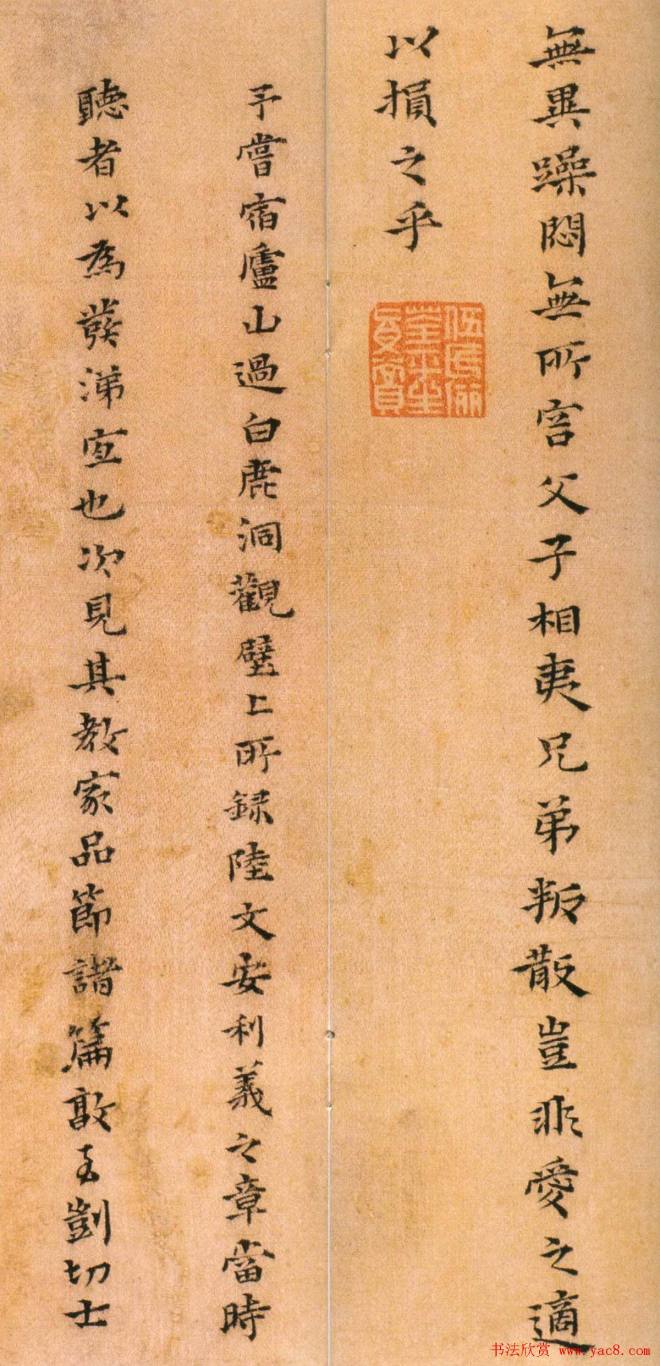 無異躁悶無所容父子相夷兄弟叛散豈非愛之適
以損之乎
予嘗宿廬山過白鹿洞觀壁上所錄陸文安利義之章當時
聽者以為發涕宜也次見其教家品節諸篇敦古劃切士
书法欣赏 www.yac8.com